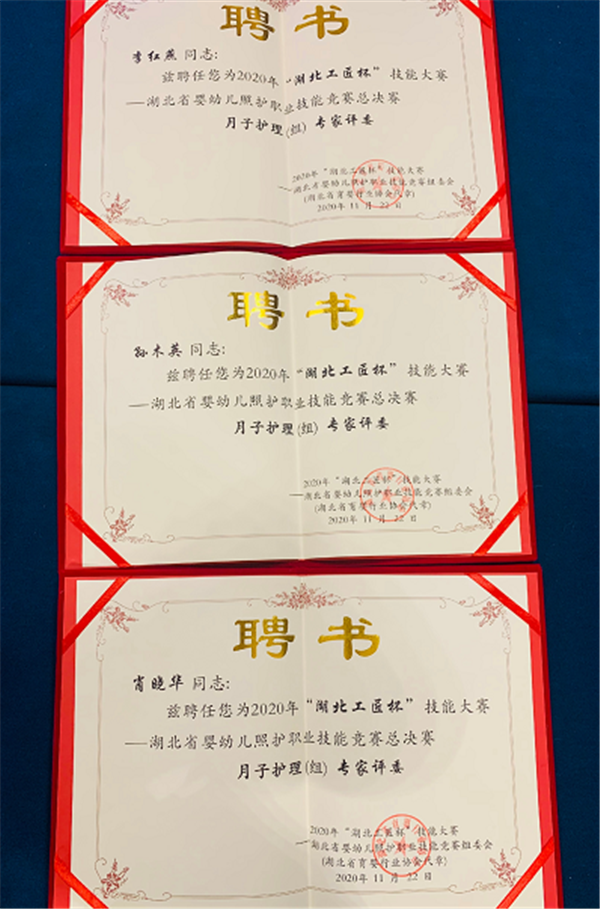 聘书
李红燕 同志:
兹聘任您为2020年“湖北工匠杯”技能大赛
——湖北省婴幼儿照护职业技能竞赛总决赛
月子护理(组) 专家评委
2020年“湖北工匠杯”技能大赛
——湖北省婴幼儿照护职业技能竞赛组委会
(湖北省育婴行业协会代章)
2020年 11月 22日
聘书
孙木英 同志:
兹聘任您为2020年“湖北工匠杯”技能大赛
——湖北省婴幼儿照护职业技能竞赛总决赛
月子护理(组) 专家评委
2020年“湖北工匠杯”技能大赛
——湖北省婴幼儿照护职业技能竞赛组委会
(湖北省育婴行业协会代章)
2020年 11月 22日
聘书
肖晓华 同志:
兹聘任您为2020年“湖北工匠杯”技能大赛
——湖北省婴幼儿照护职业技能竞赛总决赛
月子护理(组) 专家评委
2020年“湖北工匠杯”技能大赛
——湖北省婴幼儿照护职业技能竞赛组委会
(湖北省育婴行业协会代章)
2020年 11月 22日